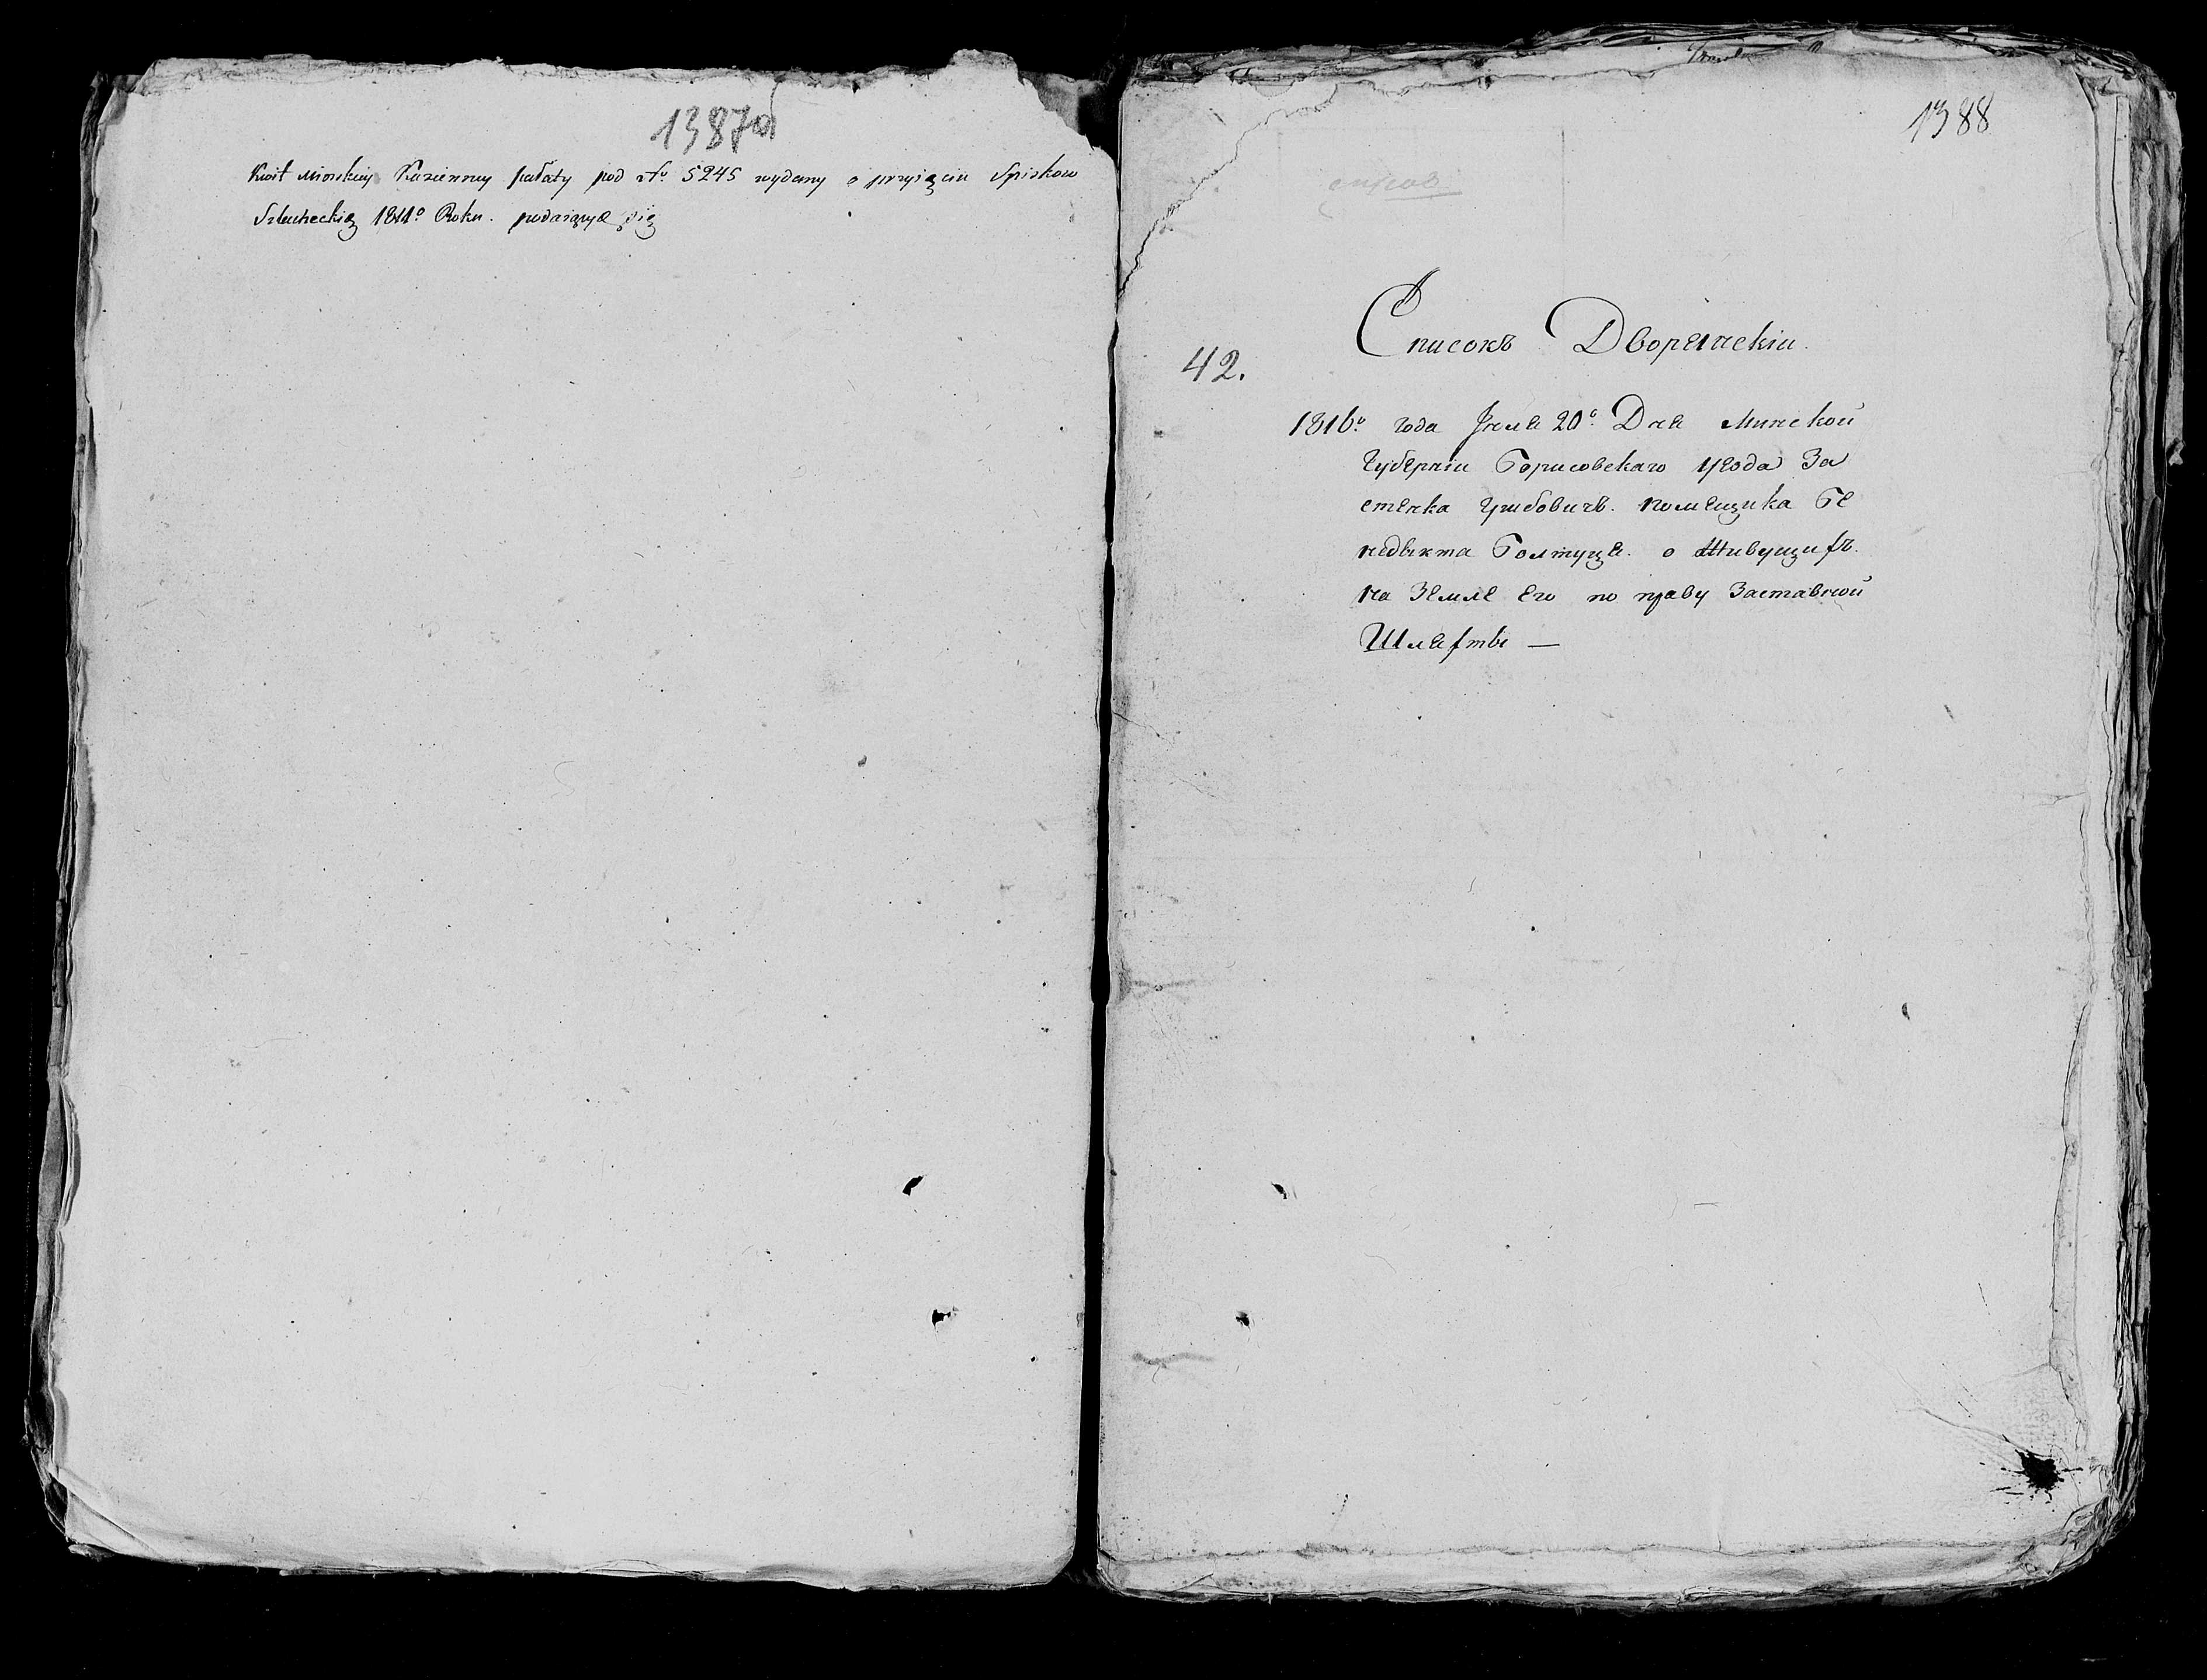 1387об
Kwit Minskiey Kazienney pałaty pod No 5245 wydany o przyięciu Spiskow
Szlacheckię 1811o Roku. podaiąnye się
1388
Списокъ Дворянскіи.
42.
1816о года Июля 20о Дня Минской
Губерніи Борисовскаго уезда За
стенка Грибовичъ. помещика Бе
недыкта Болтуця. о Живущихъ
на Земле Его по праву Заставной
Шляхты —